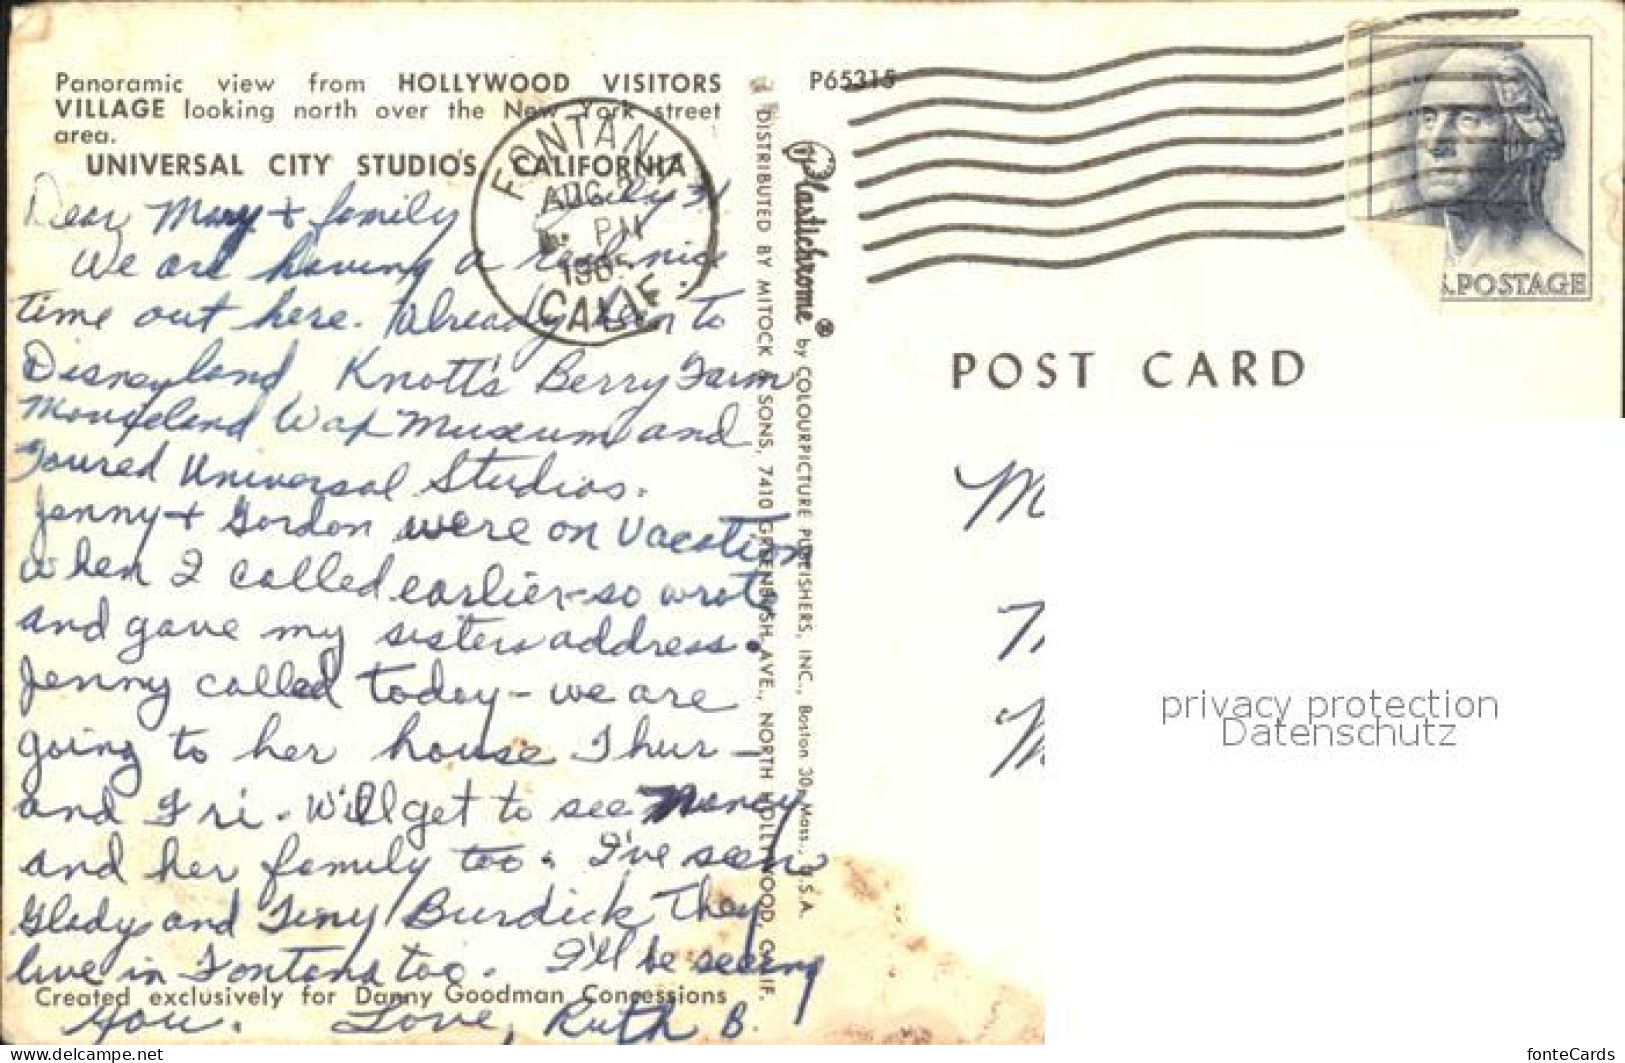 Panoramic view from HOLLYWOOD VISITORS
VILLAGE looking north over the New York street
area.
UNIVERSAL CITY STUDIOS, CALIFORNIA
Dear Mary + family July 31
We are having a real nice
time out here. Already been to
Disneyland, Knott's Berry Farm
Movieland Wax Museum and
Toured Universal Studios.
Jenny + Gordon were on vacation
when I called earlier - so wrote
and gave my sisters address.
Jenny called today - we are
going to her house Thur -
and Fri. Will get to see Nancy
and her family too. I've seen
Gladys and Tiny Burdick They
live in Fontana too. I'll be seeing
you. Love, Ruth B.
Created exclusively for Danny Goodman Concessions
FONTANA
AUG 2
PM
CALIF.
DISTRIBUTED BY MITOCK & SONS, 7410 GREENBUSH AVE., NORTH HOLLYWOOD, CALIF.
Plastichrome ® by COLOURPICTURE PUBLISHERS, INC., Boston 30, Mass., U.S.A.
P65315
.S.POSTAGE
POST CARD
M
privacy protection
Datenschutz
www.delcampe.net
fonteCards